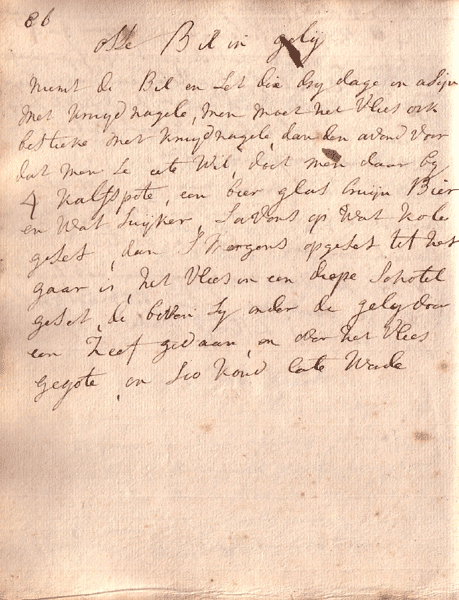 86
osse Bil in gelij
neemt de Bil en set die dry dage in asijn
met kruijdnagele, men moet het vlees ook
besteeke met kruijdnagele, dan den avond voor
dat men se eete wil, doet men daar by
4 kalfspote, een bier glas bruijn Bier
en wat suijker, savons op wat kole
geset, dan s'mergens opgeset tot het
gaar is, het vlees in een diepe schotel
geset, de boven sy onder de geley door
een zeef gedaan, en over het vlees
gegote, en soo koud late worde